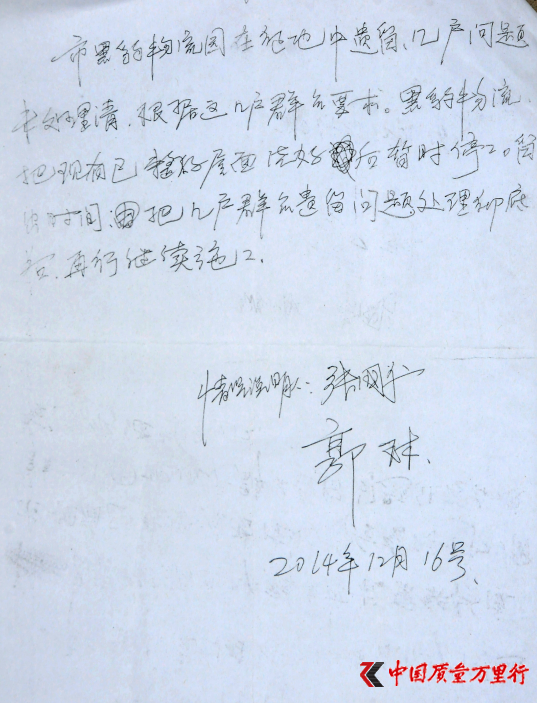 市黑豹物流园在征地中遗留、几户问题
未处理清，根据这几户群众要求。黑豹物流、
把现有已 屋面浇好 后暂时停工。留
出时间、把几户群众遗留问题处理彻底
后、再行继续施工.
情况说明人：张国
郭林、
2014年12月16号、
中国质量万里行